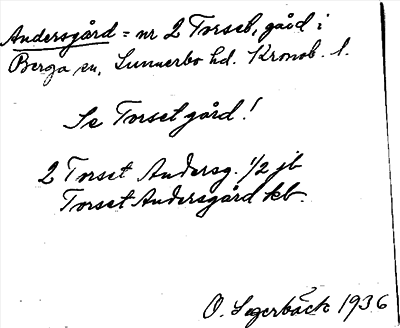 Andersgård = nr 2 Torset, gård i
Berga sn, Sunnerbo hd. Kronob. l.
Se Torset gård!
2 Torset Andersg. 1/2 jb
Torset Andersgård kb.
O. Segerbäck 1936